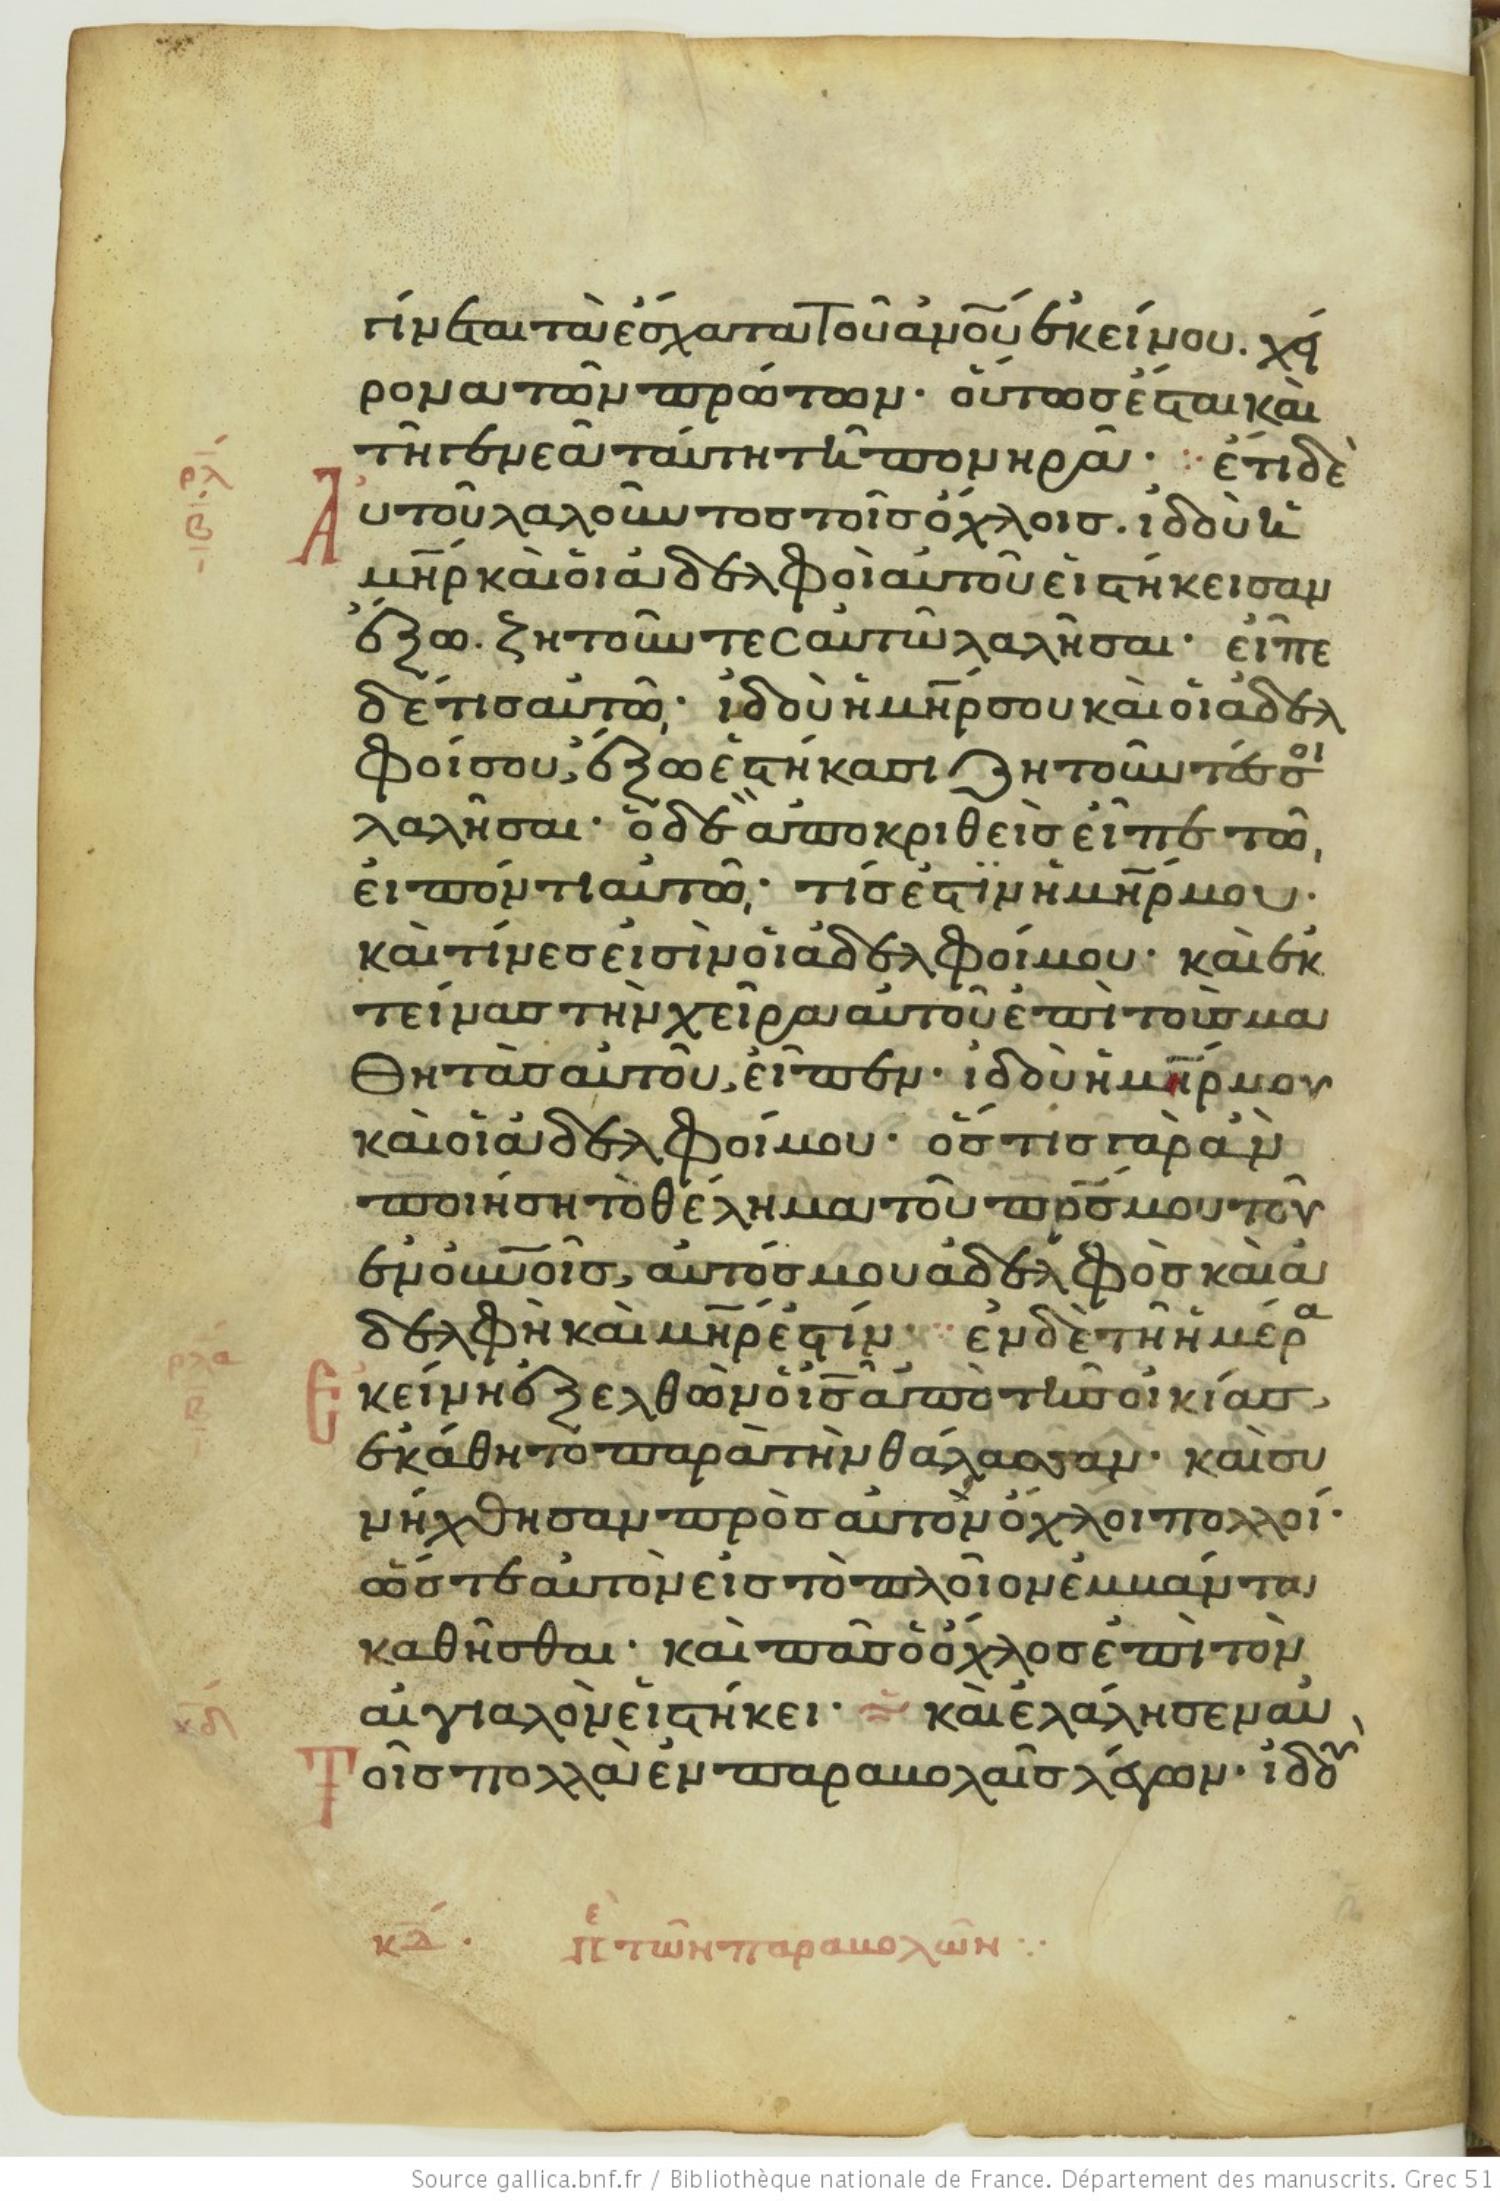 γίνεται τὰ ἔσχατα τοῦ ἀνου ἐκείνου. χεί
ρονα τῶν πρώτων· οὕτως ἔσται καὶ
τῆ γενεᾶ ταύτη τῆ πονηρᾶ· ἔτι δὲ
ρλ
β
Αὐτοῦ λαλοῦντος τοῖς ὄχλοις. ἰδοὺ ἡ
μηρ καὶ οἱ ἀδελφοὶ αὐτοῦ εἱστήκεισαν
ἔξω. ζητοῦντες αὐτῶ λαλῆσαι· εἶπε
δέ τις αὐτῶ· ἰδοὺ ἡ μηρ σου καὶ οἱ ἀδελ
φοί σου, ἔξω ἑστήκασι ζητοῦντές σοι
λαλῆσαι· ὁ δὲ ἀποκριθεὶς εἶπε τῶ
εἰπόντι αὐτῶ· τίς ἐστϊν ἡ μηρ μου·
καὶ τίνες εἰσὶν οἱ ἀδελφοί μου· καὶ ἐκ
τείνας τὴν χεῖρα αὐτοῦ ἐπὶ τοὺς μα
θητὰς αὐτοῦ, εἶπεν· ἰδοὺ ἡ μηρ μου
καὶ οἱ ἀδελφοί μου· ὅστις γὰρ ἂν
ποιήση τὸ θέλημα τοῦ πρς μου τοῦ
ἐν οὐνοῖς, αὐτός μου ἀδελφὸς καὶ ἀ
δελφὴ καὶ μηρ ἐστίν· ἐν δὲ τῆ ἡμέρα
ρλα
β
Ἐκείνη ἐξελθὼν ὁ ις ἀπὸ τῆς οἰκίας,
ἐκάθητο παρὰ τὴν θάλασσαν· καὶ συ
νήχθησαν πρὸς αὐτὸν ὄχλοι πολλοί·
ὥστε αὐτὸν εἰς τὸ πλοῖον ἐμβάντα
καθῆσθαι· καὶ πᾶς ὁ ὄχλος ἐπὶ τὸν
αἰγιαλὸν εἱστήκει· καὶ ἐλάλησεν αὐ
κδ
Τοῖς πολλὰ ἐν παραβολαῖς λέγων· ἰδοὺ
κδ· πε τῶν παραβολῶν
Source gallica.bnf.fr / Bibliothèque nationale de France. Département des manuscrits. Grec 51